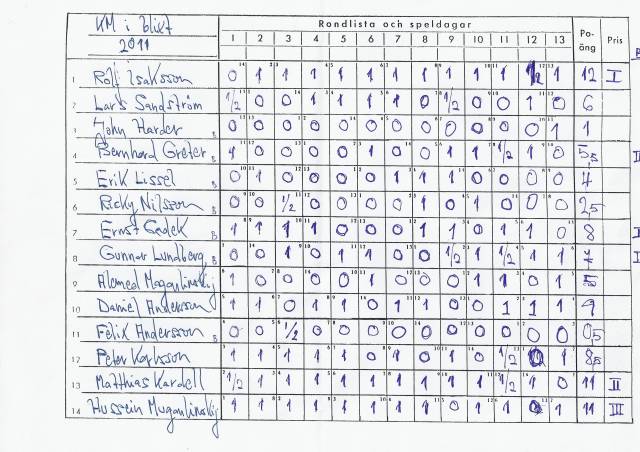 KM i blixt
2011
Rondlista och speldagar
1 2 3 4 5 6 7 8 9 10 11 12 13
Po-
äng
Pris
1 Rolf Isaksson 0 1 1 1 1 1 1 1 1 1 1 1/2 1 12 I
2 Lars Sandström 1/2 0 0 1 1 1 1 0 1/2 0 0 1 0 6
3 John Harder B 0 0 0 0 0 0 0 0 0 0 0 0 1 1
4 Bernhard Greter B 1 0 0 0 0 1 0 0 1 1 1/2 1 0 5,5
5 Erik Lissel B 0 1 0 0 0 0 1 1 1 0 0 0 0 4
6 Ricky Nilsson B 0 0 1/2 0 0 0 0 1 0 1 0 0 0 2,5
7 Ernst Gedek B 1 1 1 1 0 0 0 1 1 0 1 1 0 8
8 Gunnar Lundberg B 0 0 1 0 1 1 0 0 1/2 1 1/2 1 1 7
9 1 0 0 0 0 1 0 0 0 1 1 0 1 5
10 Daniel Andersson 1 1 0 1 1 0 1 1 0 0 1 1 1 9
11 Felix Andersson B 0 0 1/2 0 0 0 0 0 0 0 0 0 0 0,5
12 Peter Karlsson 1 1 1 1 1 0 1 0 1 0 1/2 0 1 8,5
13 Matthias Kardell 1/2 1 1 1 1 1 1 1 1 1 1/2 1 0 11 II
14 Hussein Muganlinskij 1 1 1 1 1 1 1 1 0 1 1 0 1 11 III